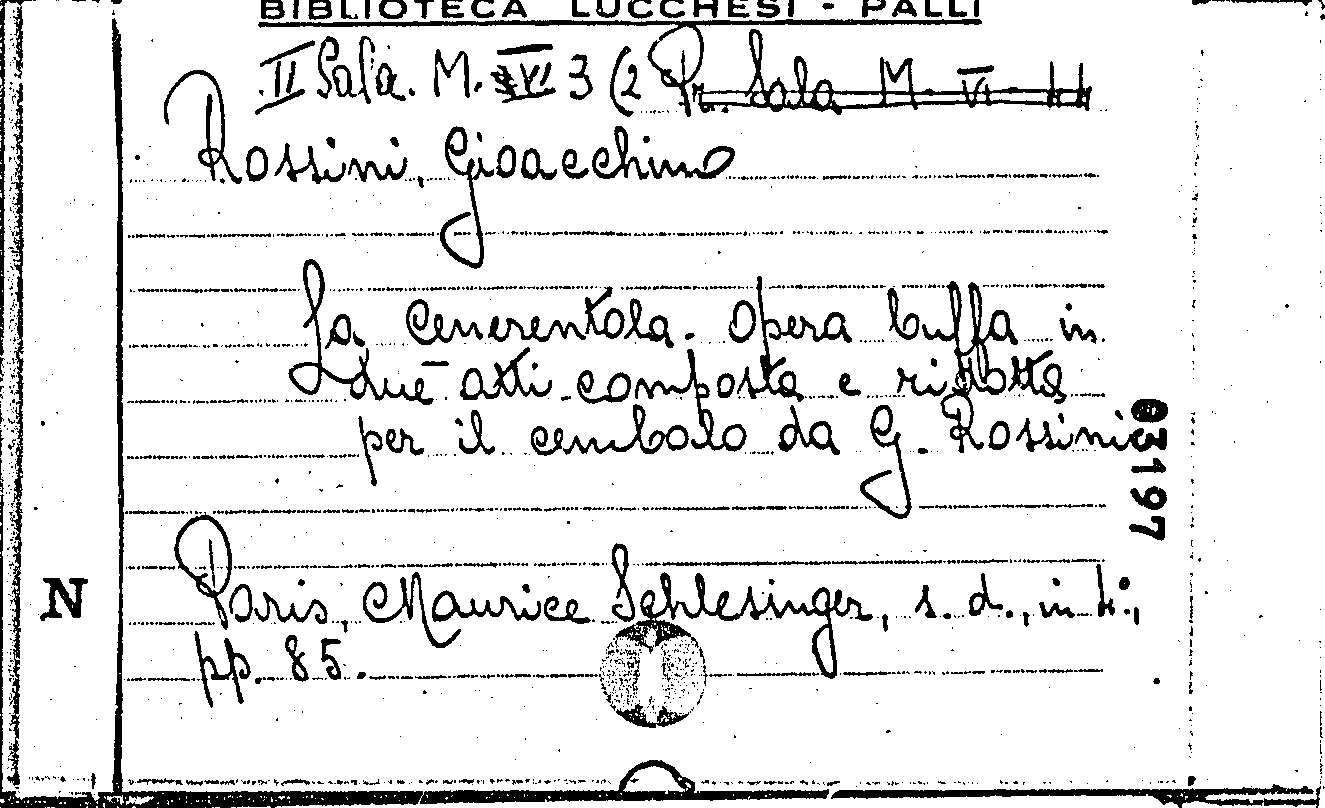 BIBLIOTECA LUCCHESI - PALLI
II Sala. M. XVI 3 (2 Pr. Sala M. VI 44
Rossini, Gioacchino
La Cenerentola. Opera buffa in
due atti composta e ridotta
per il cembalo da G. Rossini
03197
N
Paris, Maurice Schlesinger, s. d., in 4°,
pp. 85.